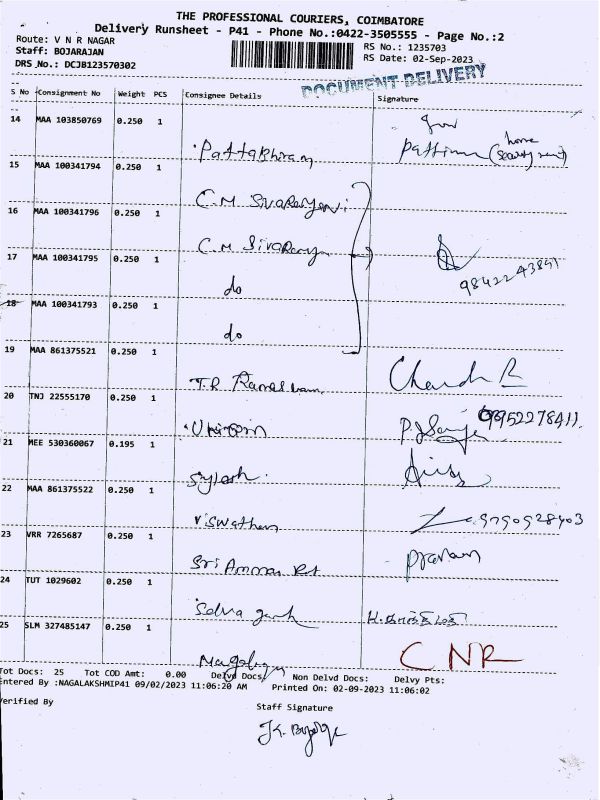 THE PROFESSIONAL COURIERS, COIMBATORE
Delivery Runsheet - P41 - Phone No.:0422-3505555 - Page No.:2
Route: V N R NAGAR
RS No.: 1235703
Staff: BOJARAJAN
RS Date: 02-Sep-2023
DRS No.: DCJB123570302
DOCUMENT DELIVERY
S No Consignment No Weight PCS Consignee Details Signature
14 MAA 103850769 0.250 1
Pattabhiram
home
15 MAA 100341794 0.250 1
C.M Sivarayani
16 MAA 100341796 0.250 1
C.M Sivaramya
17 MAA 100341795 0.250 1
do
9842243841
18 MAA 100341793 0.250 1
do
19 MAA 861375521 0.250 1
T.R
20 TNJ 22555170 0.250 1
9952278411.
21 MEE 530360067 0.195 1
22 MAA 861375522 0.250 1
Viswathan
9790928403
23 VRR 7265687 0.250 1
Sri Amman
24 TUT 1029602 0.250 1
Selva
25 SLM 327485147 0.250 1
CNR
Tot Docs: 25 Tot COD Amt: 0.00 Delvd Docs: Non Delvd Docs: Delvy Pts:
Entered By :NAGALAKSHMIP41 09/02/2023 11:06:20 AM Printed On: 02-09-2023 11:06:02
Verified By
Staff Signature